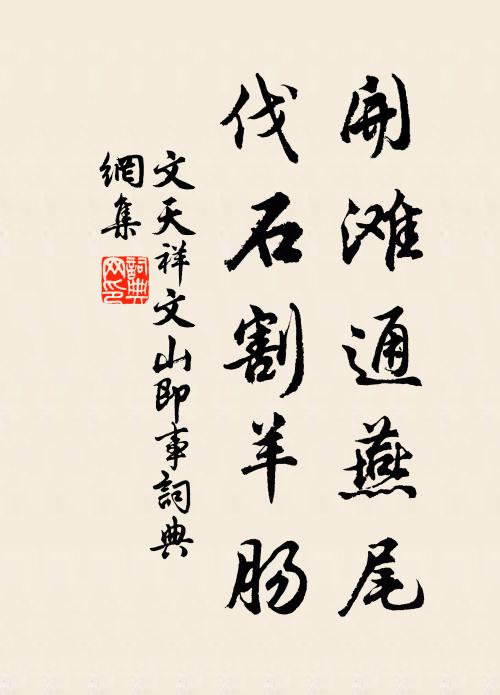 開滩通燕尾
伐石割羊肠
文天祥文山即事詞典
網集
詞典
网印